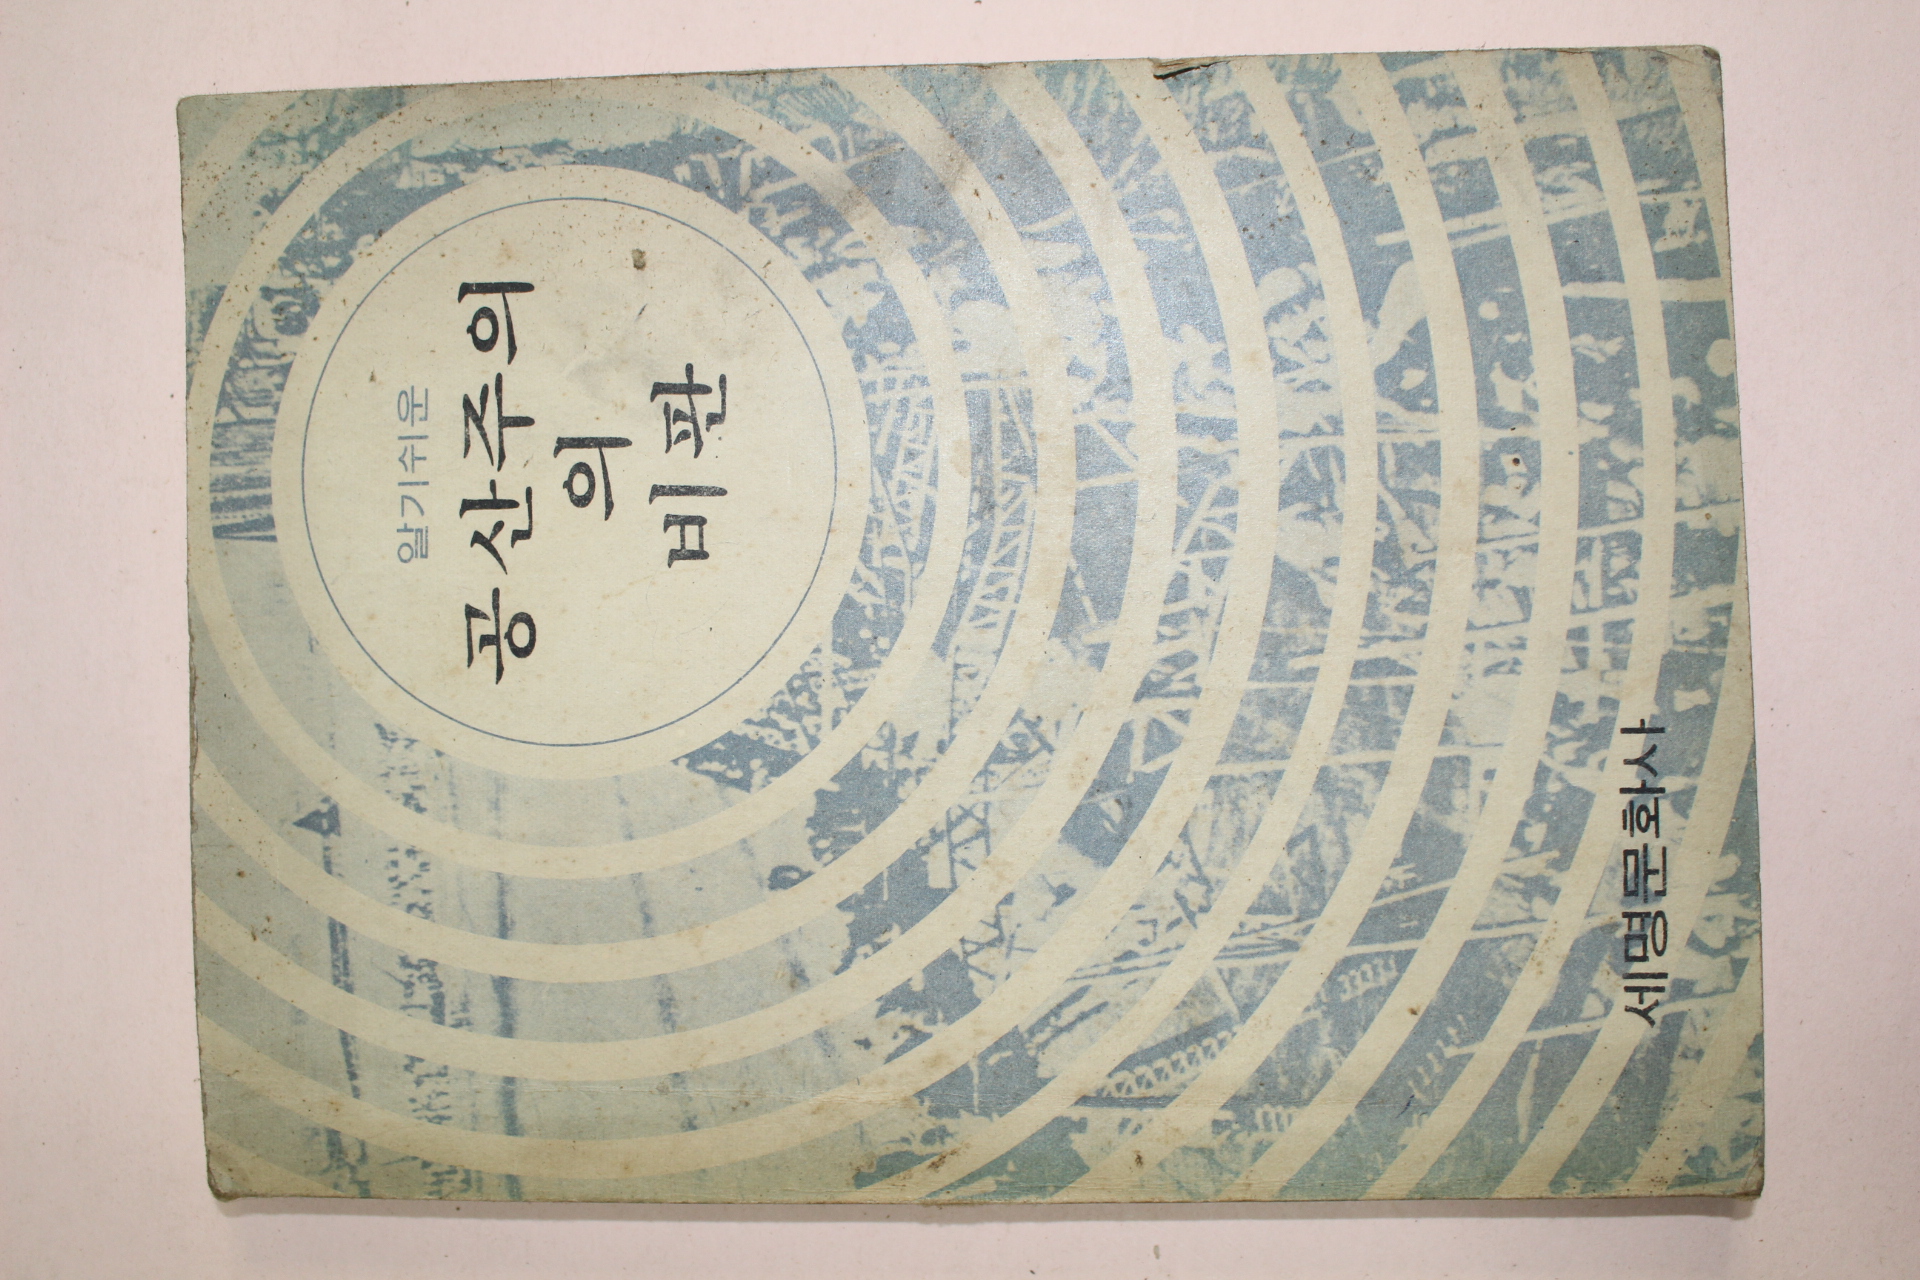 알기쉬운
공산주의
의
비판
세명문화사